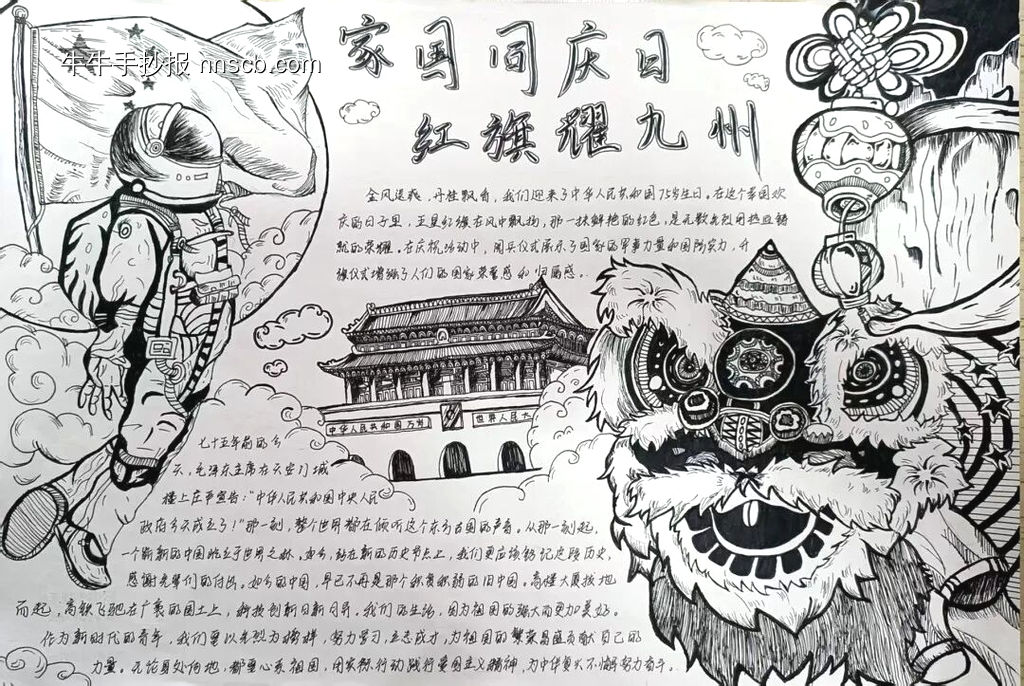 牛牛手抄报 nnscb.com
家国同庆日
红旗耀九州
金风送爽,丹桂飘香,我们迎来了中华人民共和国75岁生日。在这个举国欢
庆的日子里,五星红旗在风中飘扬,那一抹鲜艳的红色,是无数先烈用热血铸
就的荣耀。在庆祝活动中,阅兵仪式展示了国家的军事力量和国防实力,升
旗仪式增强了人们的国家荣誉感和归属感。
中华人民共和国万岁
世界人民大
七十五年前的今
天,毛泽东主席在天安门城
楼上庄严宣告:"中华人民共和国中央人民
政府今天成立了!"那一刻,整个世界都在倾听这个东方古国的声音。从那一刻起,
一个崭新的中国屹立于世界之林。如今,站在新的历史节点上,我们更应该铭记这段历史,
感谢先辈们的付出。如今的中国,早已不再是那个积贫积弱的旧中国。高楼大厦拔地
而起,高铁飞驰在广袤的国土上,科技创新日新月异。我们的生活,因为祖国的强大而更加美好。
作为新时代的青年,我们要以先烈为榜样,努力学习,立志成才,为祖国的繁荣昌盛贡献自己的
力量。无论身处何地,都要心系祖国,用实际行动践行爱国主义精神,为中华复兴不懈努力奋斗。